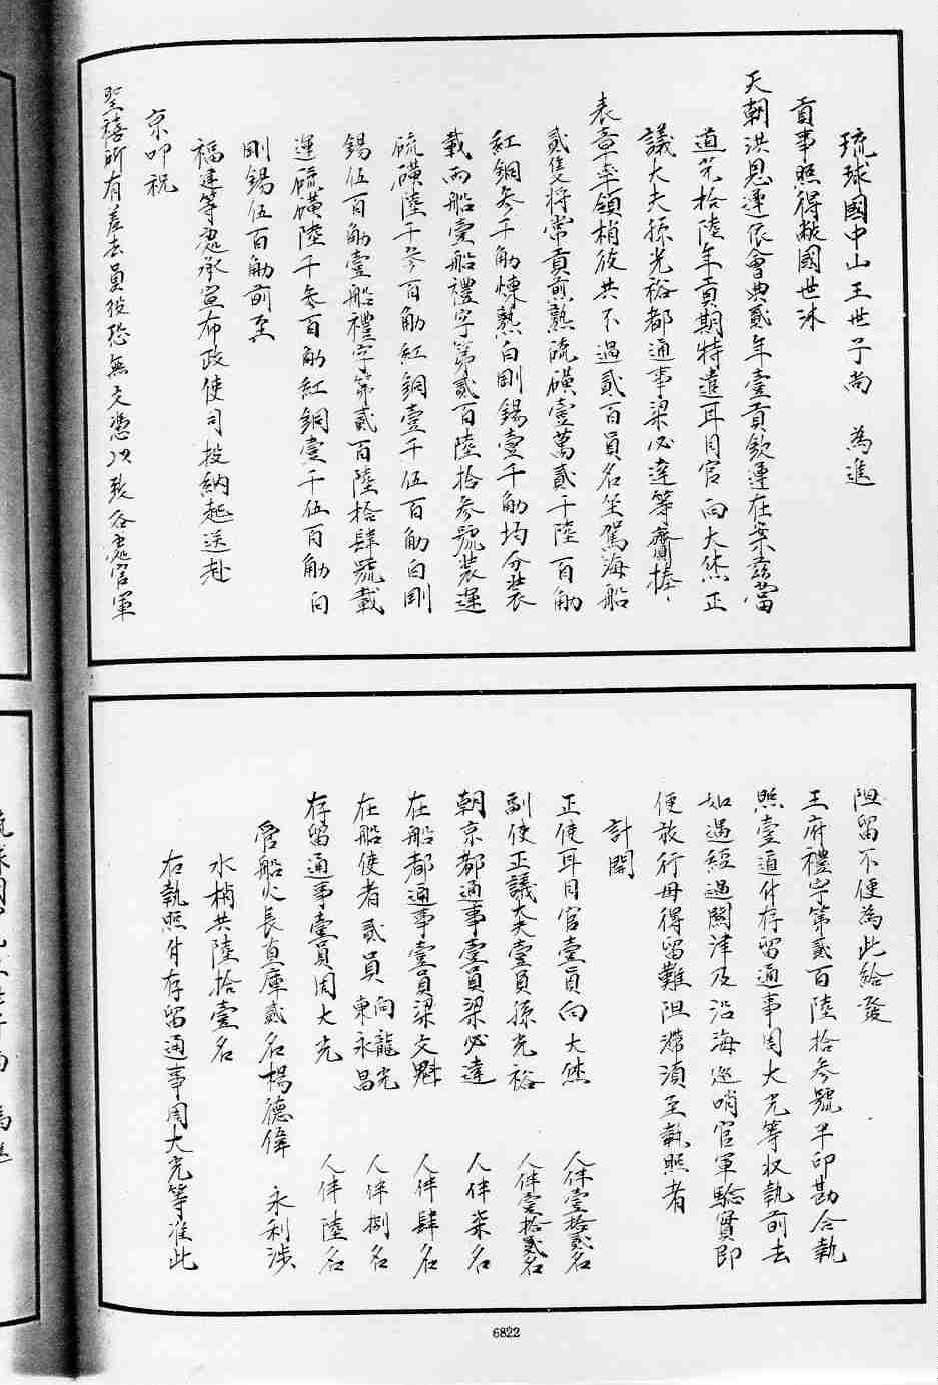 琉球國中山王世子尚　為進
貢事照得敝國世沐
天朝洪恩遵依會典貳年壹貢欽遵在案茲當
道光拾陸年貢期特遣耳目官向大烋正
議大夫孫光裕都通事梁必達等齎捧
表章率領梢役共不過貳百員名坐駕海船
貳隻將常貢煎熟硫磺壹萬貳千陸百觔
紅銅參千觔煉熟白剛錫壹千觔均分裝
載兩船壹船禮字第貳百陸拾參號裝運
硫磺陸千參百觔紅銅壹千伍百觔白剛
錫伍百觔壹船禮字第貳百陸拾肆號裝載
運硫磺陸千參百觔紅銅壹千伍百觔白
剛錫伍百觔前至
福建等處承宣布政使司投納起送赴
京叩祝
聖禧所有差去員役恐無文憑以致各處官軍
阻留不便為此給發
王府禮字第貳百陸拾參號半印勘合執
照壹道付存留通事周大光等收執前去
如遇經過關津及沿海巡哨官軍驗實即
便放行毋得留難阻滯須至執照者
計開
正使耳目官壹員向大烋　人伴壹拾貳名
副使正議大夫壹員孫光裕　人伴壹拾貳名
朝京都通事壹員梁必達　人伴柒名
在船都通事壹員梁文魁　人伴肆名
在船使者貳員向龍光東永昌　人伴捌名
存留通事壹員周大光　人伴陸名
管船火長直庫貳名楊德偉　永利涉
水梢共陸拾壹名
右執照付存留通事周大光等准此
6822